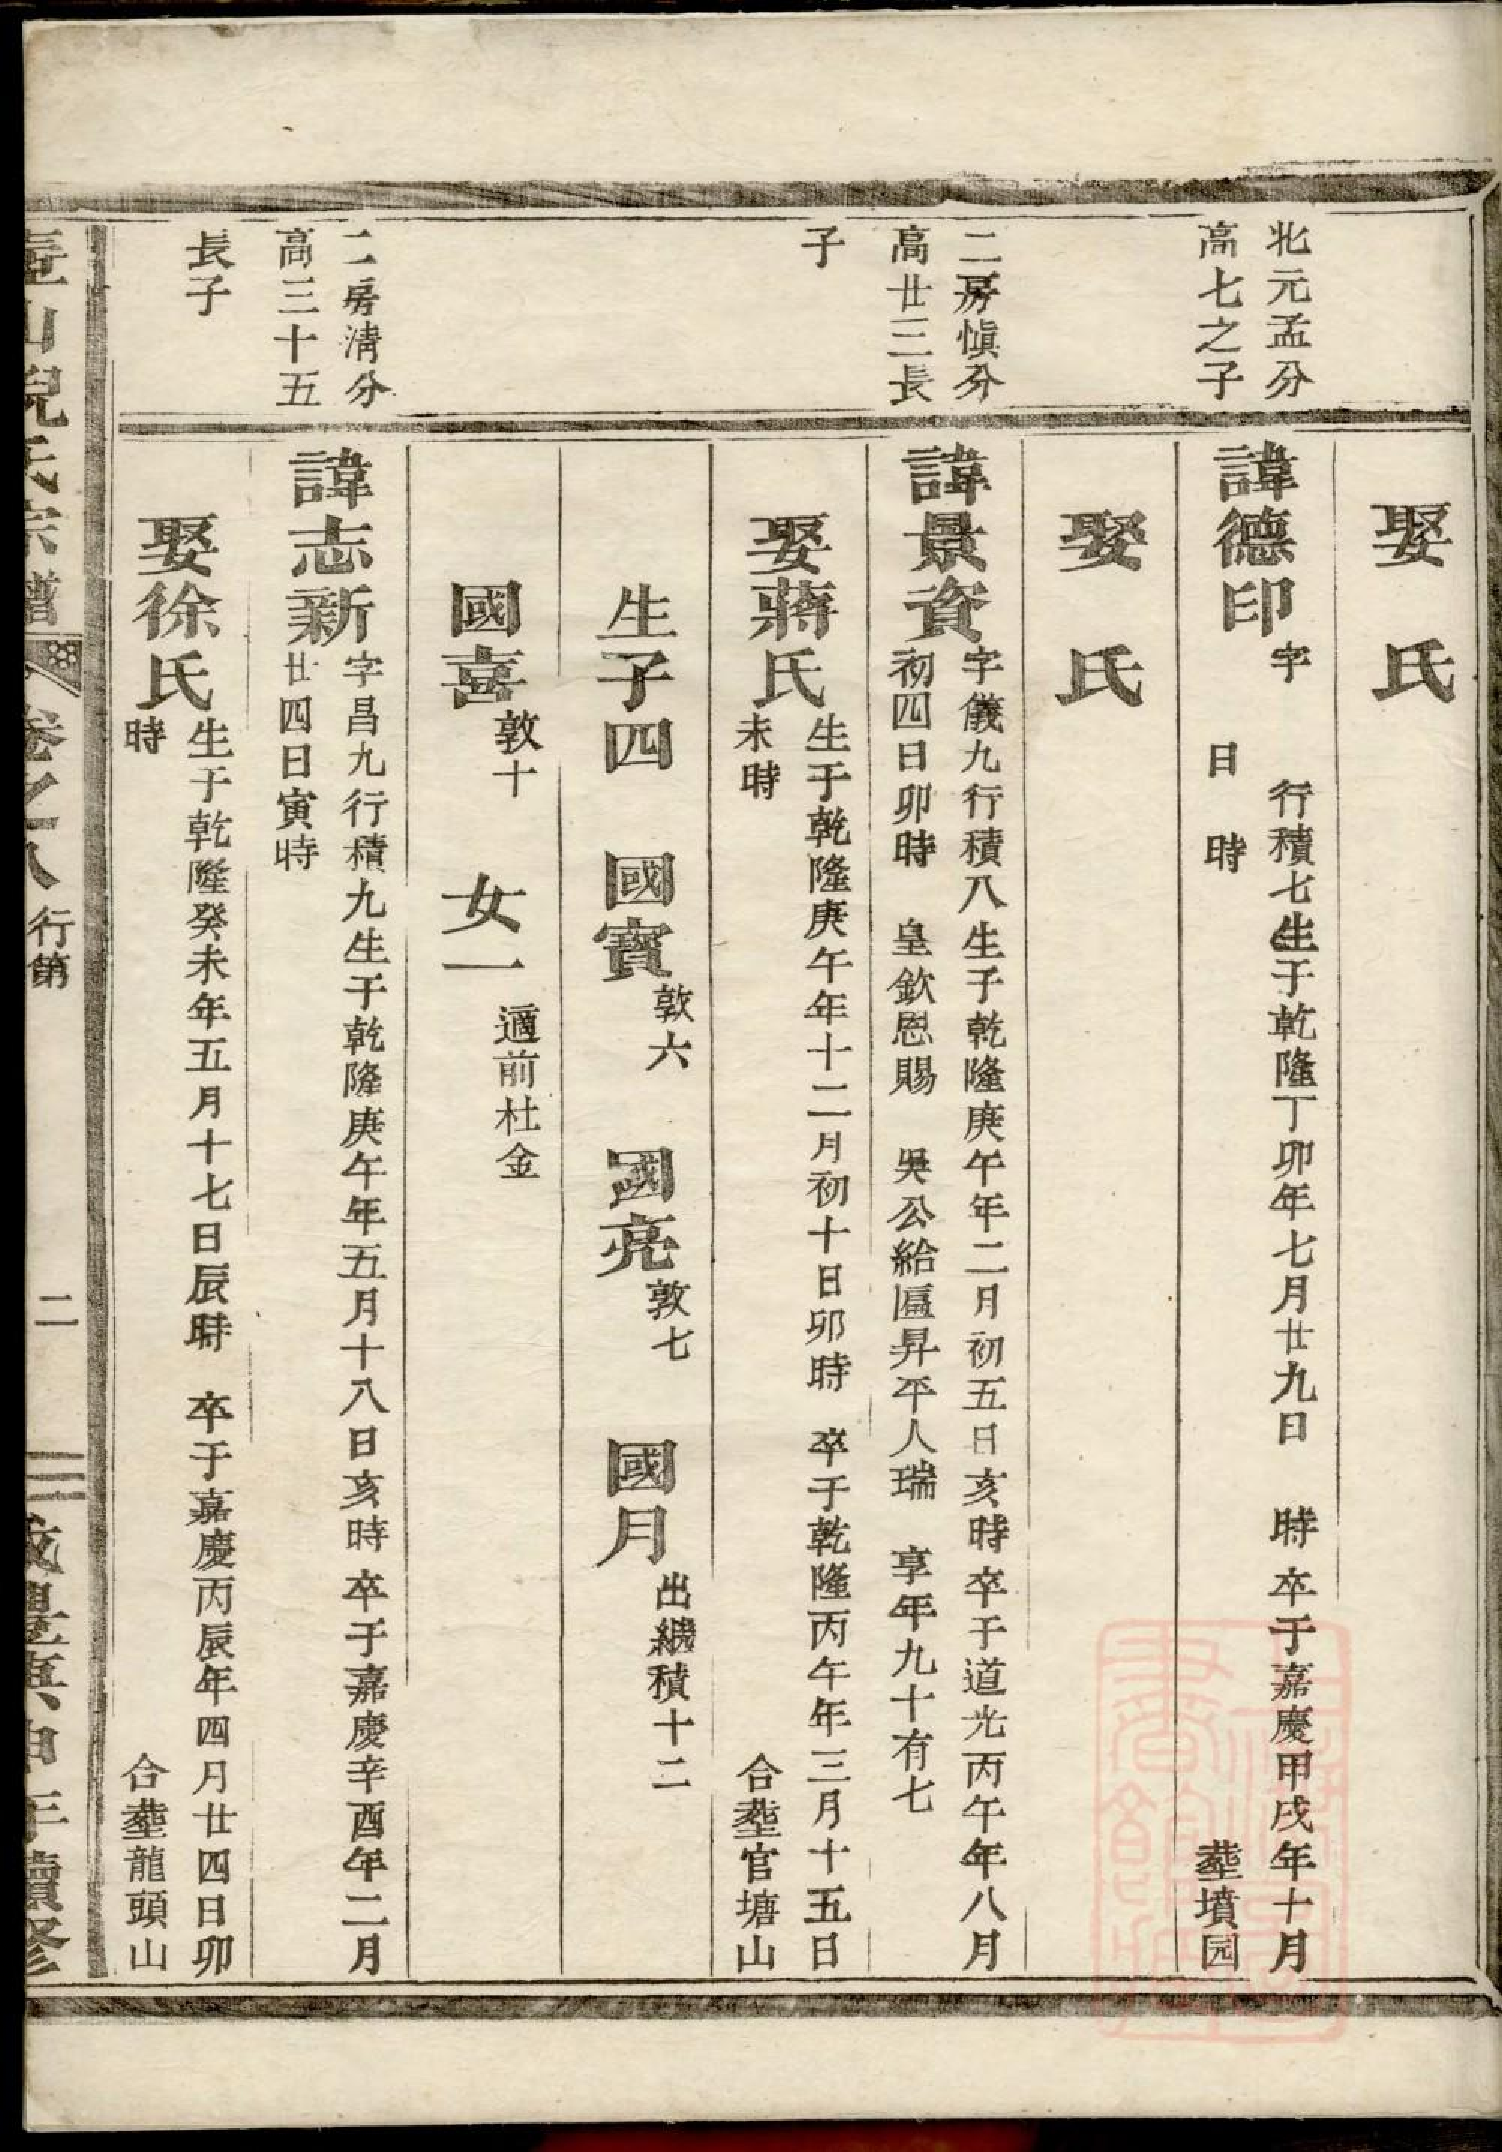 娶　氏
北元孟分
高七之子
諱德印
字　行積七生于乾隆丁卯年七月廿九日　時卒于嘉慶甲戌年十月
日　時　塟墳园
娶　氏
二房慎分
高廿三長
子
諱景資
字儀九行積八生于乾隆庚午年二月初五日亥時卒于道光丙午年八月
初四日卯時　皇欽恩賜　吳公給匾昇平人瑞　享年九十有七
娶蔣氏
生于乾隆庚午年十二月初十日卯時　卒于乾隆丙午年三月十五日
未時　合塟官塘山
生子四　國寶敦六　國亮敦七　國月出繼積十二
國喜敦十　女一適前杜金
二房清分
高三十五
長子
諱志新
字昌九行積九生于乾隆庚午年五月十八日亥時卒于嘉慶辛酉年二月
廿四日寅時
娶徐氏
生于乾隆癸未年五月十七日辰時　卒于嘉慶丙辰年四月廿四日卯
時　合塟龍頭山
山倪氏宗譜　卷之八　行第　二　咸豐庚申年續修